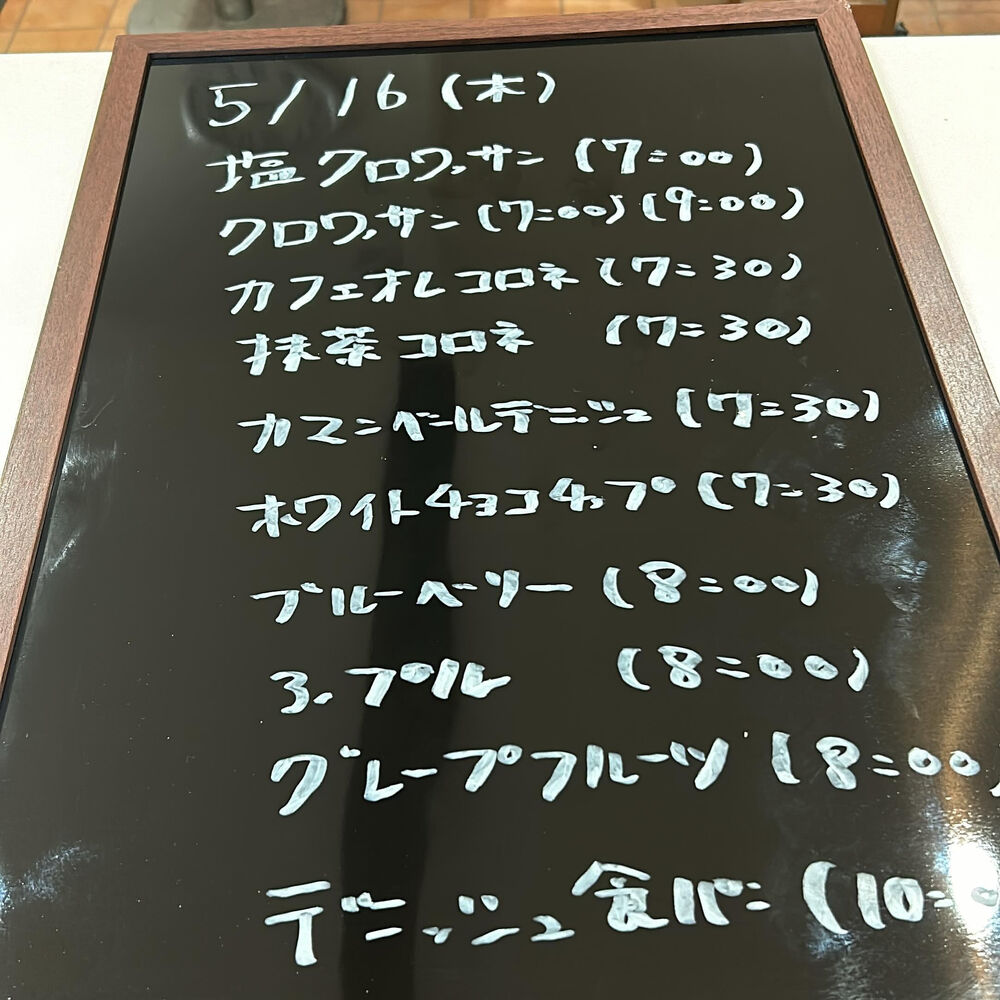 5/16(木)
塩クロワッサン(7:00)
クロワッサン(7:00)(9:00)
カフェオレコロネ(7:30)
抹茶コロネ(7:30)
カマンベールデニッシュ(7:30)
ホワイトチョコチップ(7:30)
ブルーベリー(8:00)
3.プル(8:00)
グレープフルーツ(8:00)
デニッシュ食パン(10:0